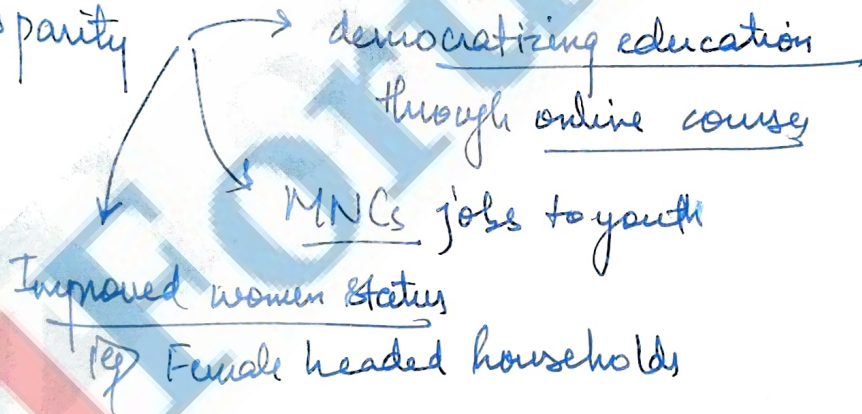 parity → democratizing education
through online courses
MNCs jobs to youth
Improved women status
eg Female headed households